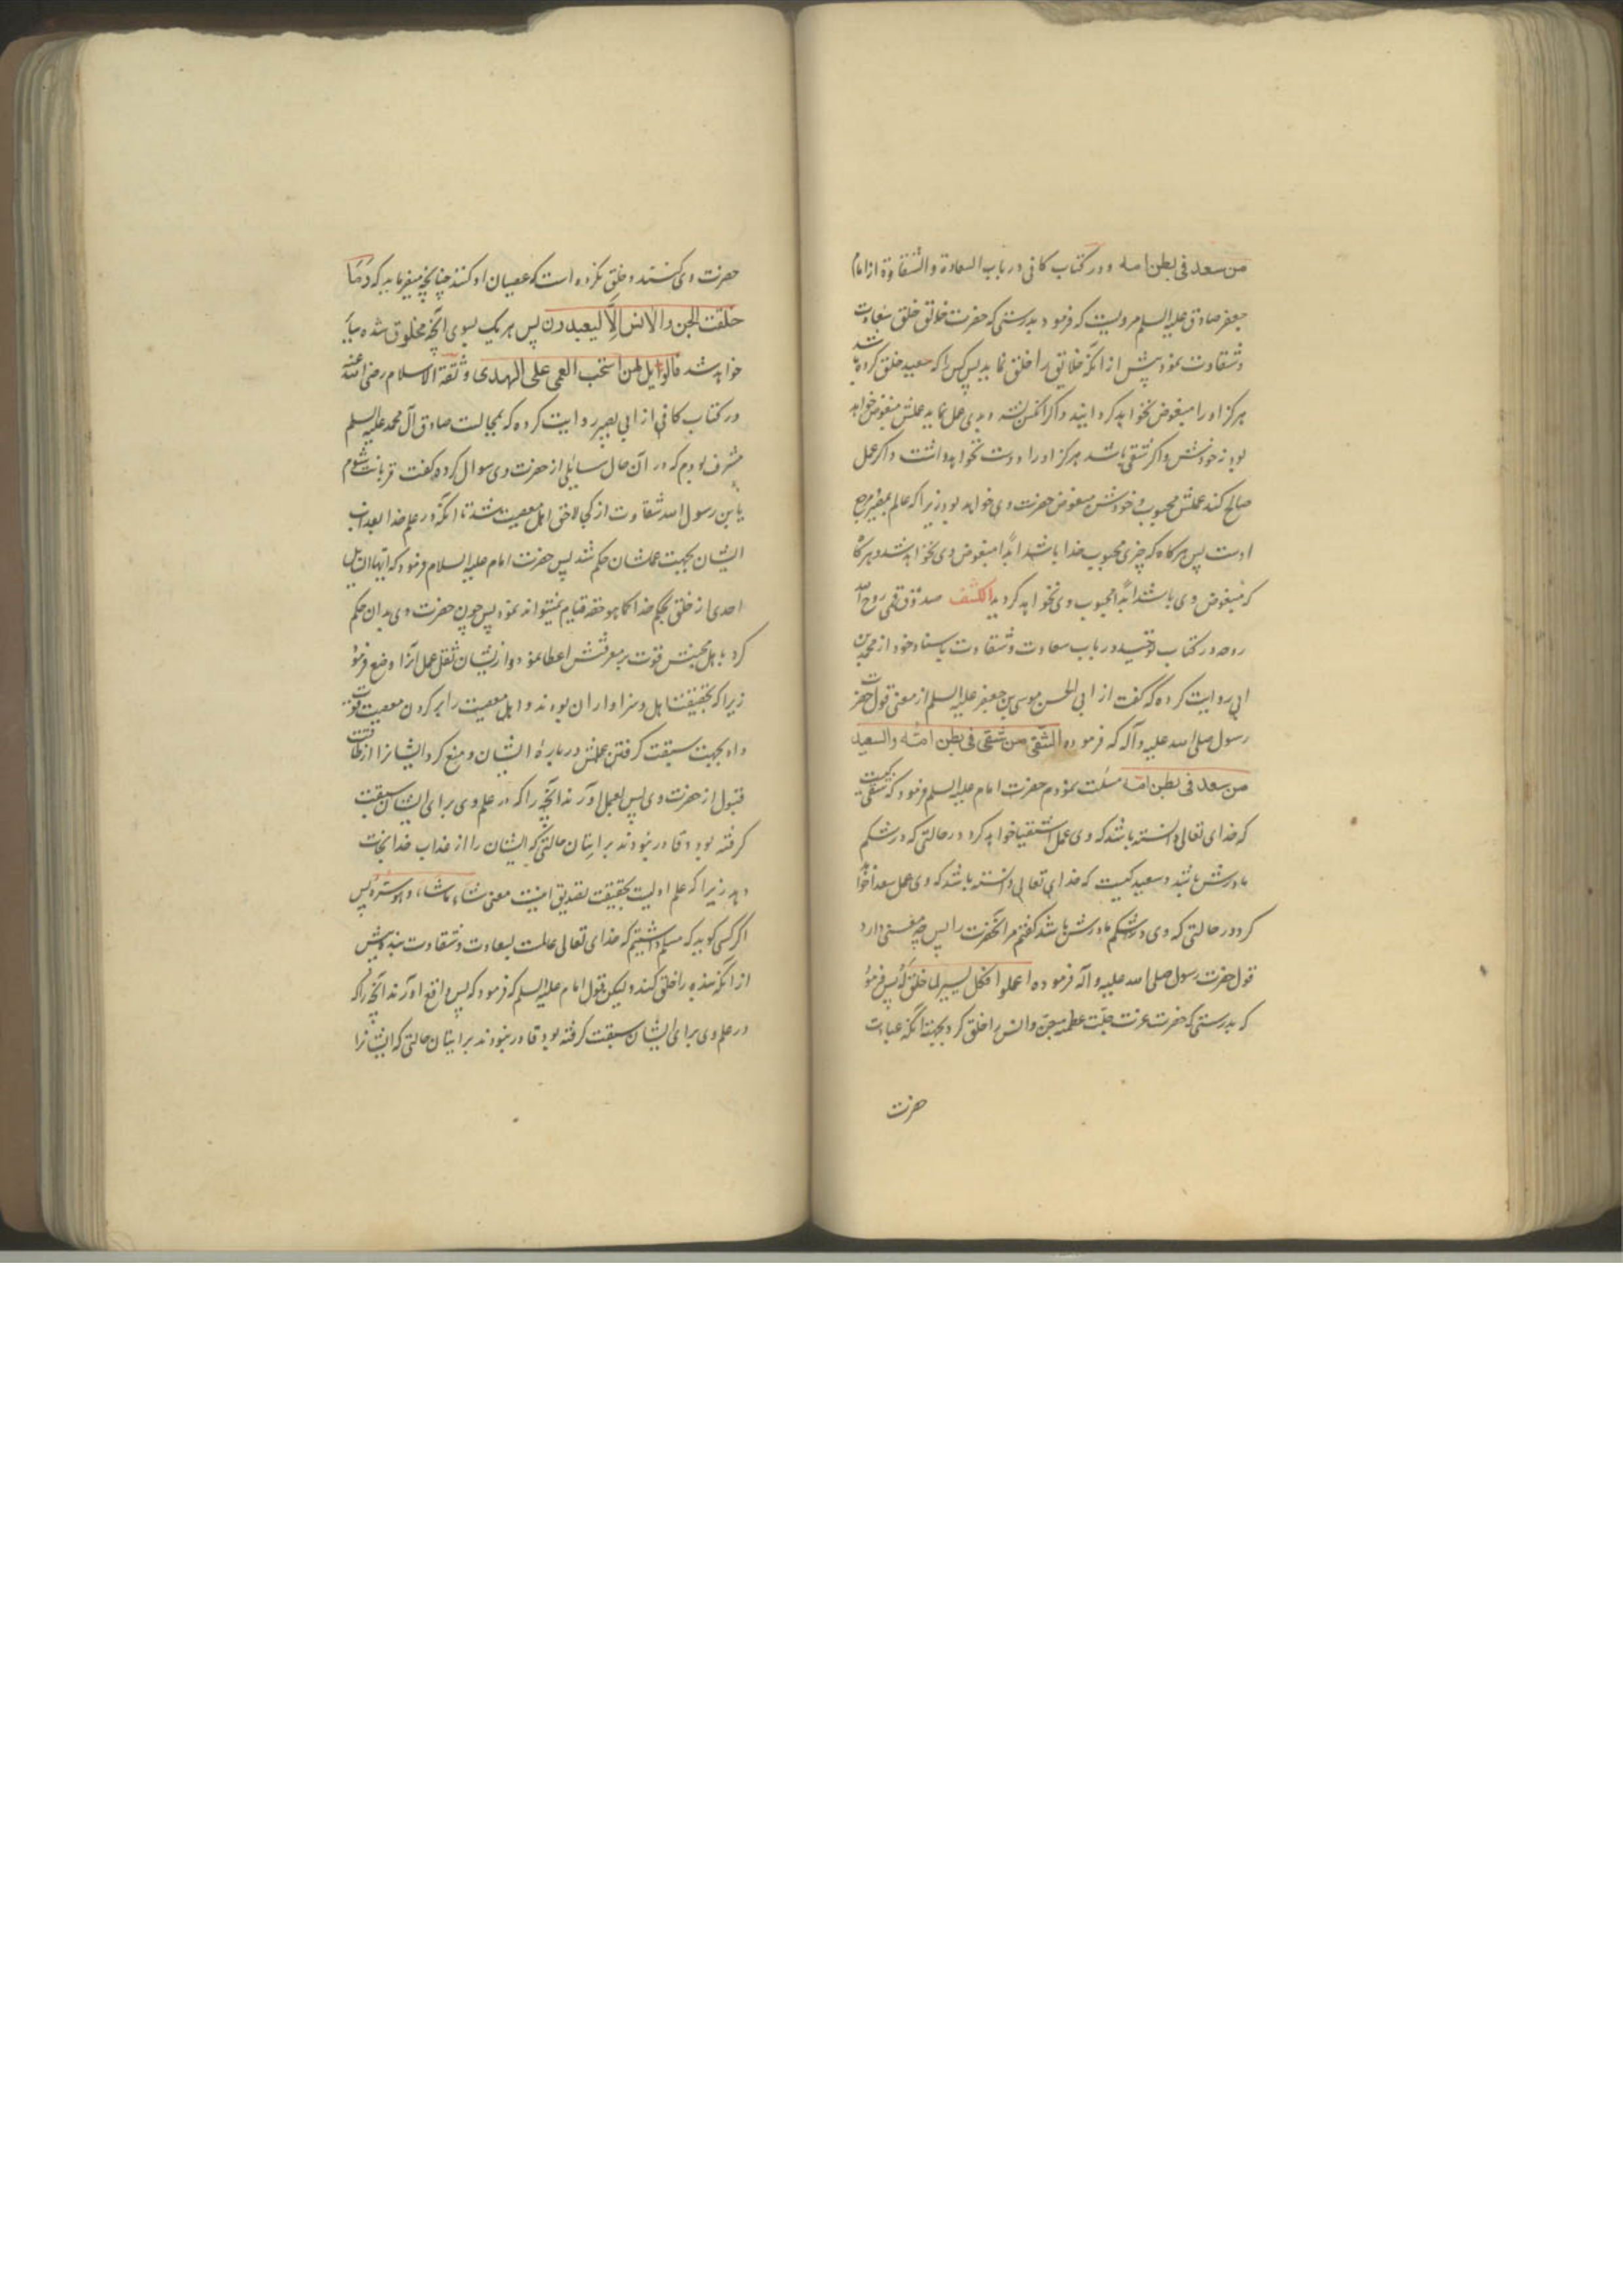 من سعد فی بطن امه و در کتاب کافی در باب السعادة والشقاوة از امام
جعفر صادق علیه السلم مرویست که فرمود بدرستی که حضرت خالق خلق سعادت
و شقاوت نمود پیش از انکه خلایق را خلق نماید پس کس را که سعید خلق کرده باشد
هرکز او را مبغوض نخواهد کردانید و اکر بدی عمل نماید عملش مبغوض خواهد
بود نه خودش و اکر شقی باشد هرکز او را دوست نخواهد داشت و اکر عمل
صالح کند عملش محبوب و خودش مبغوض حضرت وی خواهد بود زیرا که عالم
اوست پس هرکاه که چیزی محبوب خدا باشد ابداً مبغوض وی نخواهد شد و هرکاه
که مبغوض وی باشد ابداً محبوب وی نخواهد کردید الکشف صدوق قمی روح الله
روحه در کتاب توحید در باب سعادت و شقاوت باسناد خود از محمد بن
ابی روایت کرده که گفت از ابی الحسن موسی بن جعفر علیه السلم از معنی قول حضرت
رسول صلی الله علیه و آله که فرموده الشقی من شقی فی بطن امّه والسعید
من سعد فی بطن امّه مسئلت نمودم حضرت امام علیه السلم فرمود که شقی کیست
که خدای تعالی دانسته باشد که وی عمل اشقیا خواهد کرد در حالتی که در شکم
مادرش باشد و سعید کیست که خدای تعالی دانسته باشد که وی عمل سعدا خواهد
کرد در حالتی که وی در شکم مادرش باشد کفتم مر انحضرت را پس چه معنی دارد
قول حضرت رسول صلی الله علیه و اله فرموده اعملوا فکل میسر لما خلق له پس فرمود
که بدرستی که حضرت عزت جلّت عظمته جن و انس را خلق کرد بجهت انکه عبادت
حضرت
حضرت وی کنند و خلق نکرده است که عصیان او کنند چنانچه میفرماید که وَمَا
خلقت الجن والانس الّا لیعبدون پس هر یک بسوی انچه مخلوق شده
خواهد شد فالویل لمن استحب العمی علی الهدی و ثقة الاسلام رضی الله عنه
در کتاب کافی از ابی بصیر روایت کرده که بمجالست صادق آل محمد علیه السلم
مشرف بودم که در آن حال سایلی از حضرت وی سوال کرده گفت قربانت شوم
یا بن رسول الله شقاوت از کجا لاحق اهل معصیت شد تا انکه در علم خدا بعذاب
ایشان بجهت عملشان حکم شد پس حضرت امام علیه السلام فرمود که ایها السایل
احدی از خلق بحکم خدا کما هو حقه قیام نمیتواند نمود پس چون حضرت وی بدان حکم
کرد باهل محبتش قوت بر معرفتش اعطا نمود و از ایشان ثقل عمل انرا وضع فرمود
زیرا که بحقیقتنا اهل و سزاوار ان بودند و اهل معصیت را بر کردن معصیت قوت
داد بجهت سبقت کرفتن علمش در بارهٔ ایشان و منع کرد ایشانرا از طاقت
قبول از حضرت وی پس بعمل آورند انچه را که در علم وی برای ایشان سبقت
کرفته بود و قادر نبودند بر اتیان حالتی که ایشان را از عذاب خدا نجات
دهد زیرا که علم اولیست بحقیقت تصدیق اینست معنی شاء ماشاء و هو سرّه پس
اکر کسی کوید که مسلم داشتیم که خدای تعالی عالمست بسعادت و شقاوت بنده پیش
از انکه بنده را خلق کند ولیکن قول امام علیه السلم که فرمود که پس واقع آورند انچه را که
در علم وی برای ایشان سبقت کرفته بود و قادر نبودند بر اتیان حالتی که ایشانرا